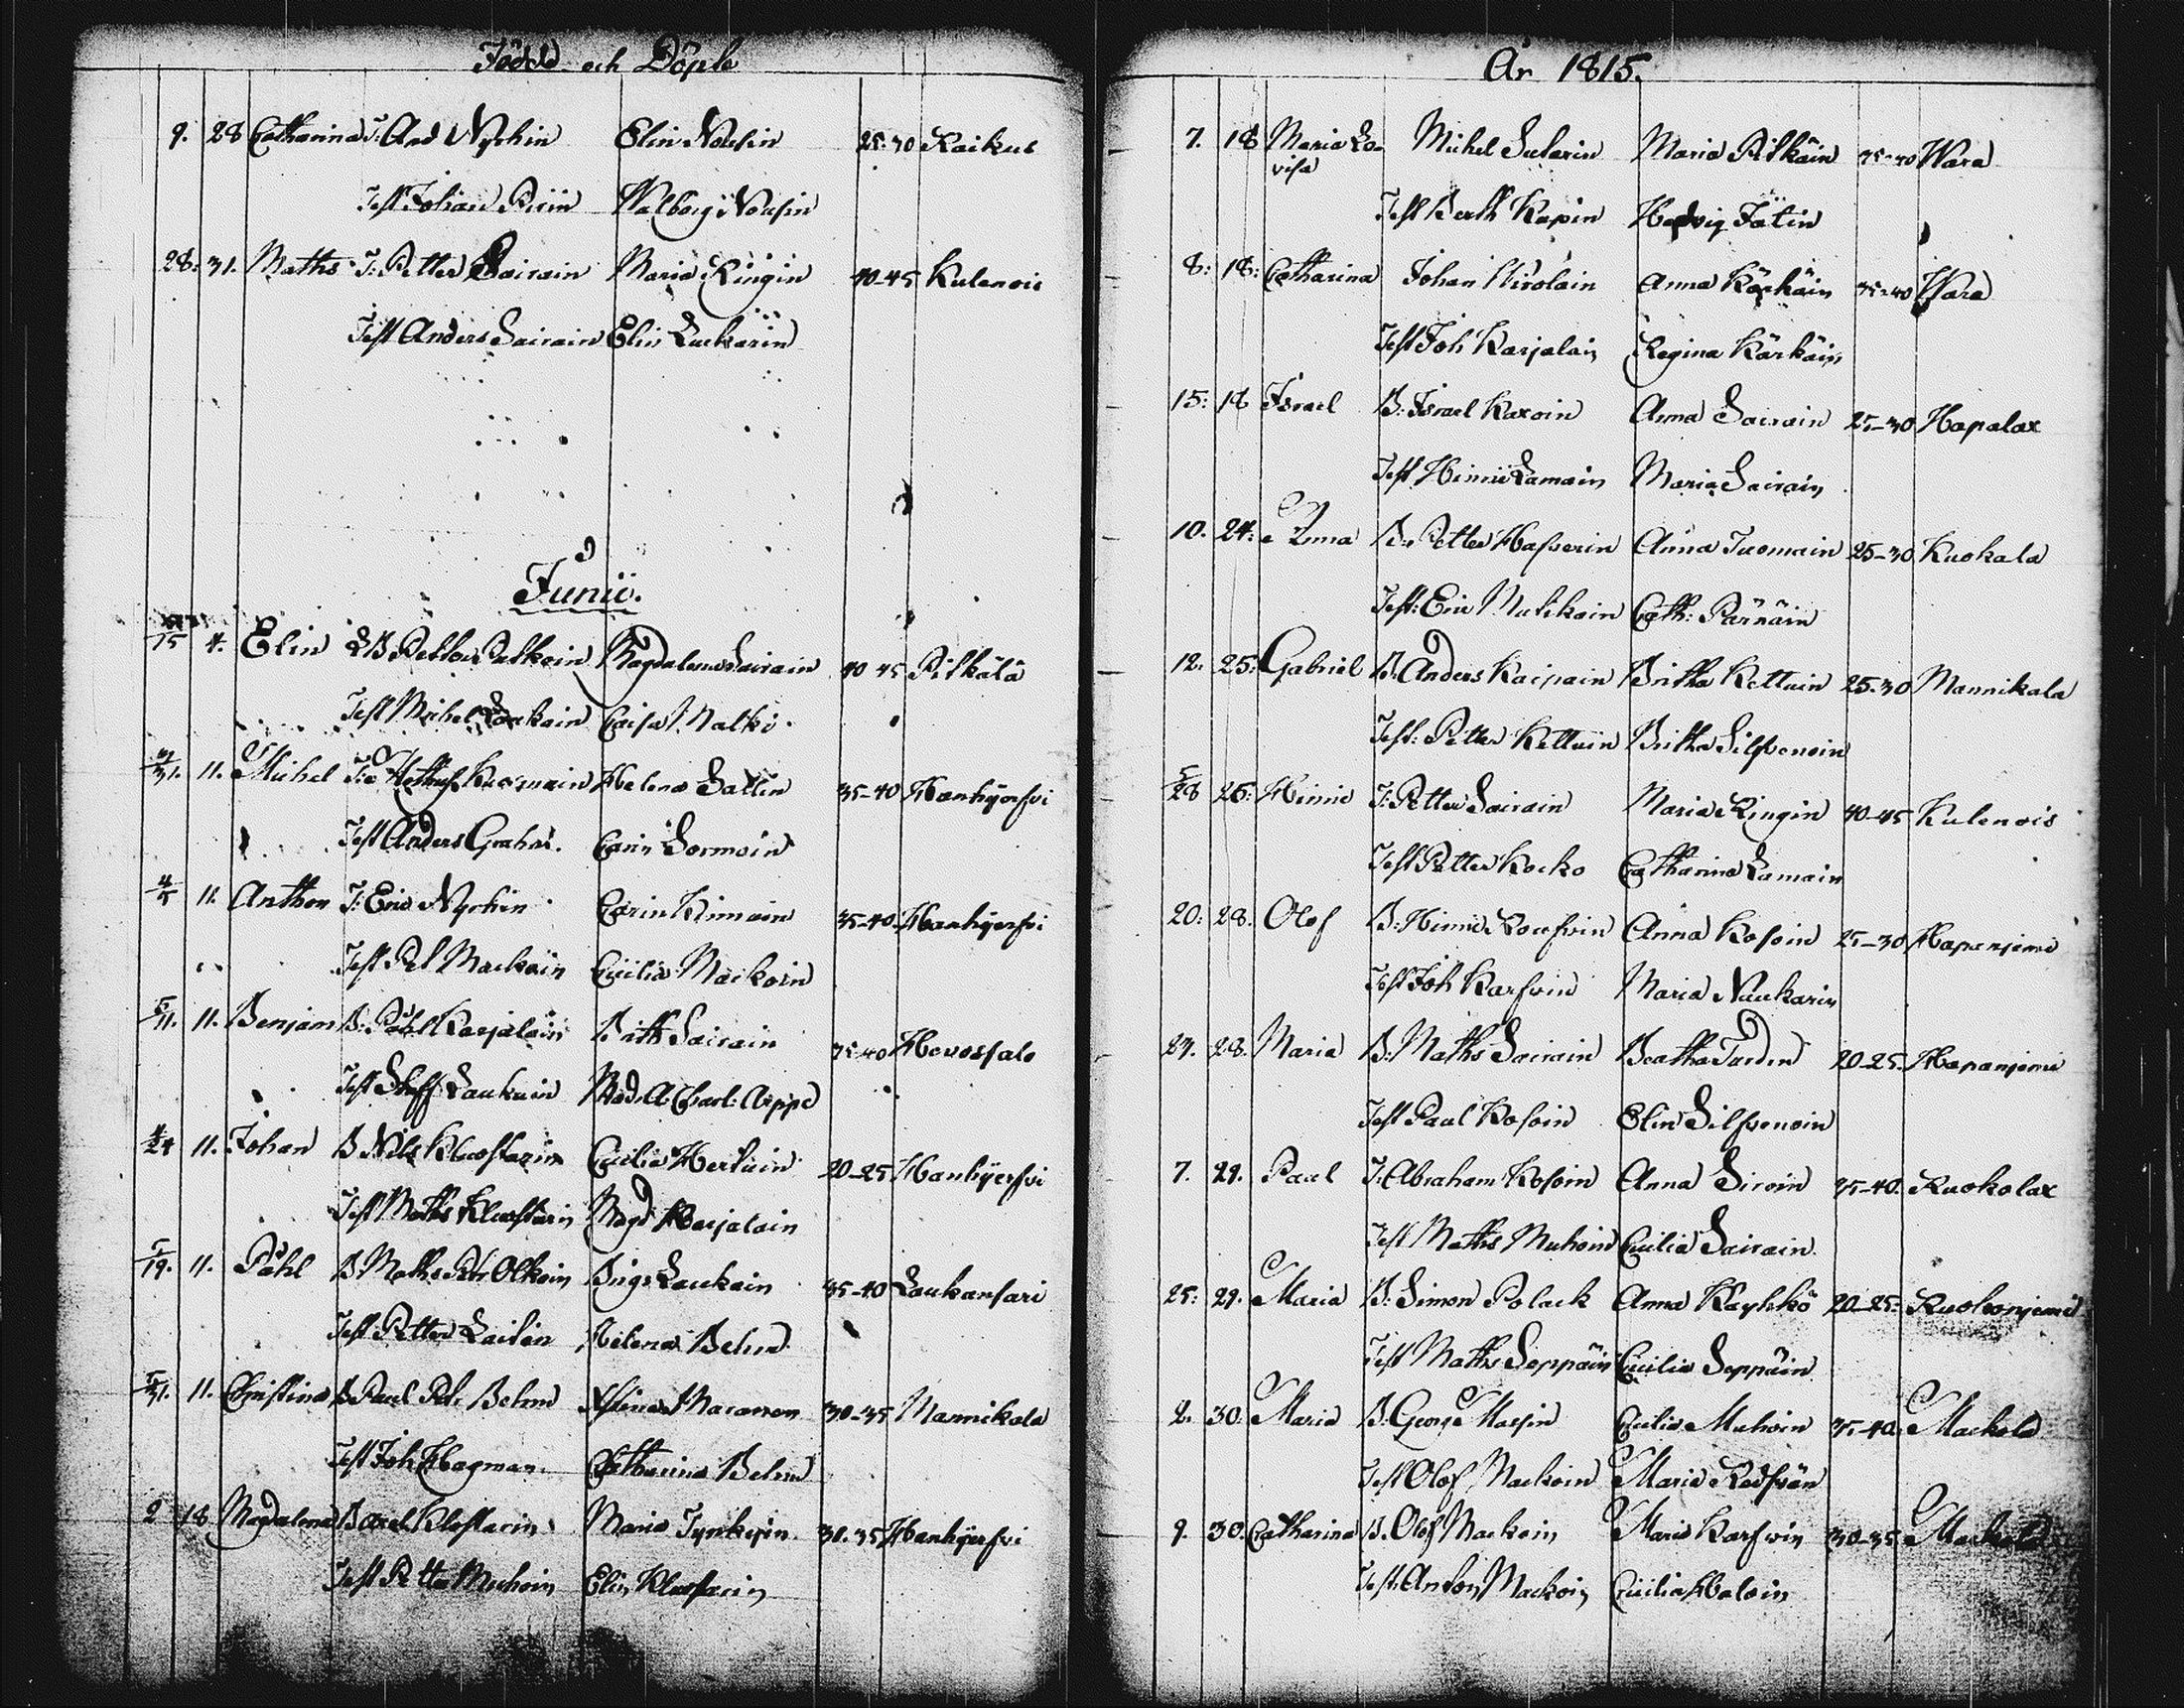 Född och Döpte
9. 28 Catharina T: And Nychin Elin Nousin 25-30 Raikus
Test Johan Piiin Walborg Nousin
28: 31. Maths T: Petter Sairain Maria Ringin 40-45 Kulenois
Test Anders Sairain Elin Luukarin
Junii.
15 4. Elin B Petter Pulkain Magdalena Sairain 40 45 Pitkälä
Test Michel Loukain Caisa Malki
31. 11. Michel T: Kuosmain Helena Sallin 35-40 Hanhijerfvi
Test Anders Grahn. Carin Sormoin
4/5 11. Anthon T: Eric Nychin Carin Kimain 35-40 Hanhijerfvi
Test Pel Mackoin Cicilia Mackoin
5/11. 11. Benjam B: Påhl Karjalain Brith Sairain 35-40 Hevossalo
Test Staff Laukain Mad. A: Charl: Arppe
4/24 11. Johan B Nils Kluostarin Cicilia Hertuin 20-25 Hanhijerfvi
Test Maths Kluostarin Magd Karjalain
5/19. 11. Påhl B Maths Petr Olkoin Brigs Laukain 35-40 Laukansari
Test Petter Laitin Helena Behm
5/31. 11. Christina B Paul Petr Behm Stina Maranen 30-35 Mannikala
Test Joh Hagman. Catharina Behm
2 18 Magdalena B Axel Klostarin Maria Tynkyin 30-35 Hanhijerfvi
Test Petter Muhoin Elin Kluostarin
År 1815.
7. 18 Maria Lo- Michel Sutarin Maria Pitkäin 35-40 Wara
visa
Test Berth Kapin Hedvig Jätin
8: 18: Catharina Johan Hirolain Anna Kärkäin 35-40 Wara
Test Joh Karjalain Regina Kärkäin
15: 18 Israel B: Israel Karoin Anna Sairain 25-30 Hapalax
Test Hinric Lamain Maria Sairain
10. 24: Anna B: Petter Hafverin Anna Tuomain 25-30 Kuokala
Test: Eric Mutikain Cath: Pärnäin
12. 25: Gabriel B. Anders Kaipain Britha Kettuin 25-30 Mannikala
Test: Petter Kettuin Britha Silfvenoin
5/28 25: Hinric T: Petter Sairain Maria Ringin 40-45 Kulenois
Test Petter Kocko Catharina Lamain
20: 28. Olof B: Hinric Roufvin Anna Kosoin 25-30 Hapaniemi
Test Joh Karfvin Maria Nuukarin
27. 28. Maria B: Maths Sairain Beatha Tardin 20-25. Hapaniemi
Test Paul Kosoin Elin Silfvenoin
7. 29. Paul T: Abraham Kosoin Anna Siroin 35-40. Ruokolax
Test Maths Muhoin Cicilia Sairain.
25: 29. Maria B: Simon Polack Anna Käyhkö 20-25: Ruokoniemi
Test Maths Seppäin Cicilia Seppäin
2. 30. Maria B: George Massin Cicilia Muhoin 35-40. Mackola
Test Olof Mackoin Maria Rödfvän
9. 30. Catharina B. Olof Mackoin Maria Karfvin 30-35 Mackola
Test: Anton Mackoin Cicilia Haloin